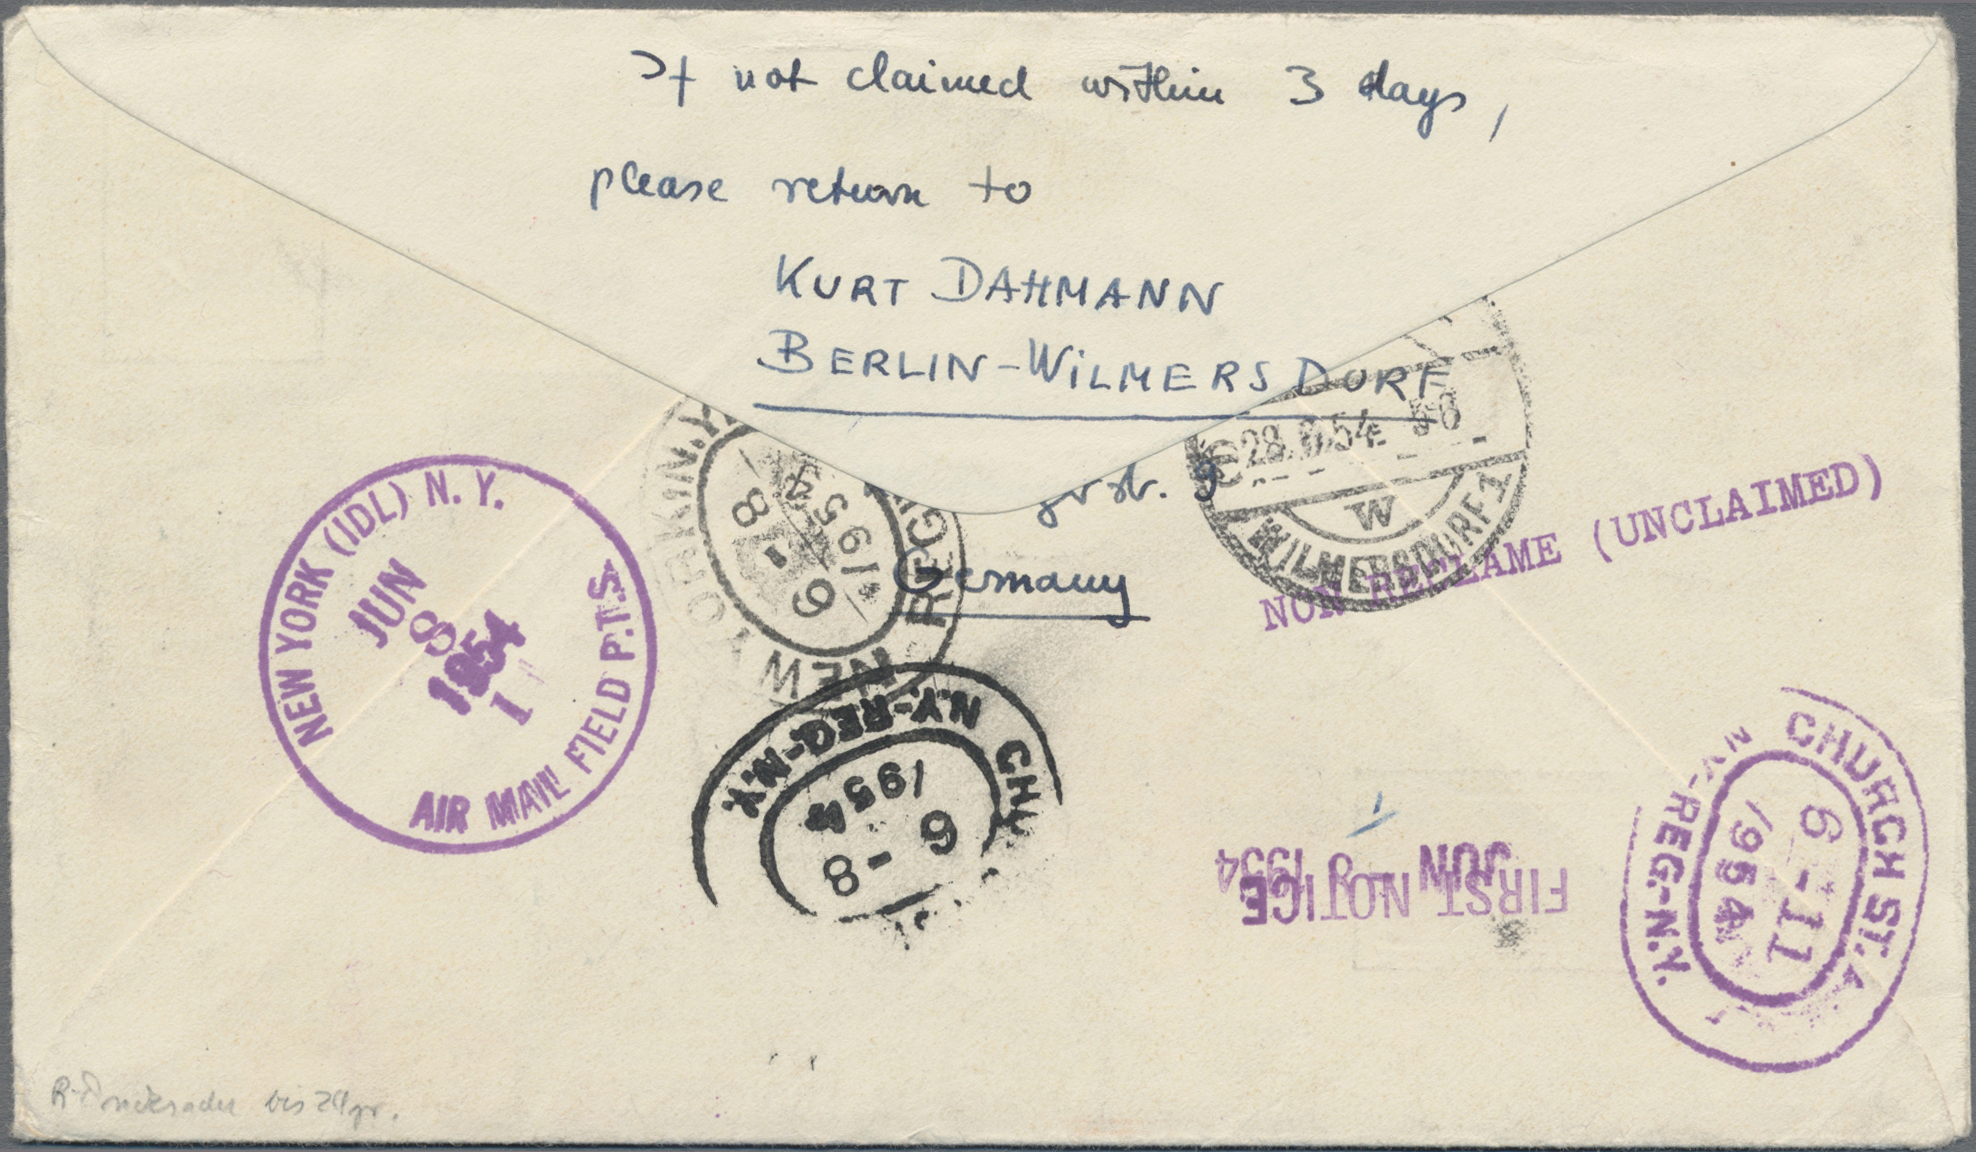 If not claimed within 3 days,
please return to
KURT DAHMANN
BERLIN-WILMERSDORF
str. 9
Germany
NEW YORK (IDL) N. Y.
JUN
8
1954
1
AIR MAIL FIELD P.T.S.
NEW YORK N.Y.
REG
6 1 8
1954
28. 54 - 8
W
WILMERSDORF 1
NON RECLAME (UNCLAIMED)
CHU
N.Y.-REG.-N.Y.
6 - 8
1954
FIRST NOTICE
JUN 8 1954
CHURCH ST. A
N.Y.-REG.-N.Y.
6-11
1954
R-Drucksache bis 20gr.